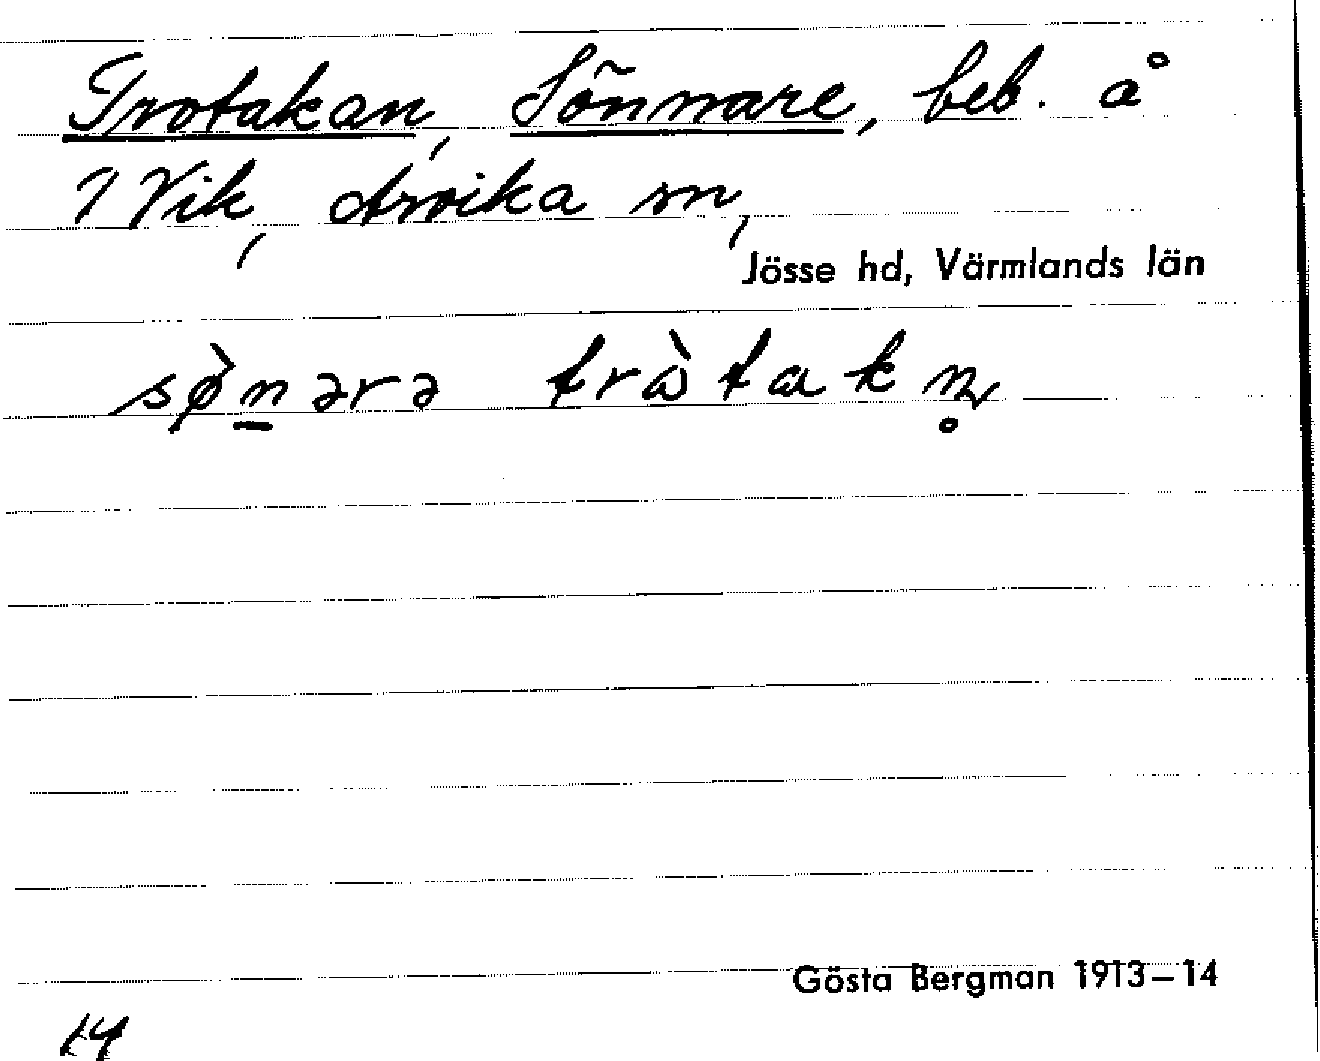 Trotakan, Sönnare, beb. å
7 Vik, Arvika sn,
Jösse hd, Värmlands län
sø̀n̲ərə trὼtakn̥
Gösta Bergman 1913–14